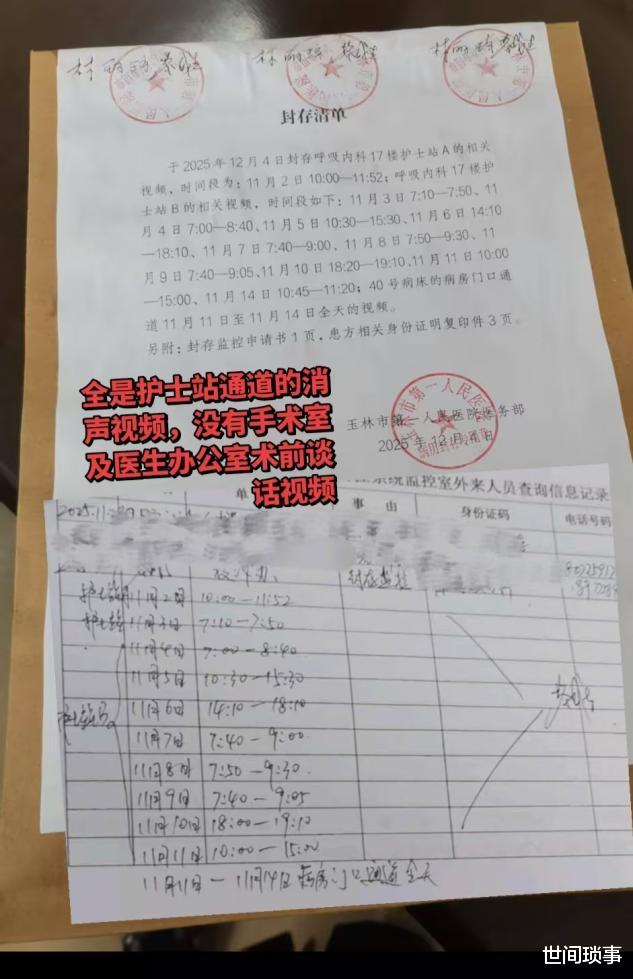 封存清单
于2025年12月4日封存呼吸内科17楼护士站A的相关
视频，时间段为：11月2日10:00—11:52；呼吸内科17楼护
士站B的相关视频，时间段如下：11月3日7:10—7:50、11
月4日7:00—8:40、11月5日10:30—15:30、11月6日14:10
—18:10、11月7日7:40—9:00、11月8日7:50—9:30、11
月9日7:40—9:05、11月10日18:20—19:10、11月11日10:00
—15:00、11月14日10:45—11:20；40号病床的病房门口通
道11月11日至11月14日全天的视频。
另附：封存监控申请书1页，患方相关身份证明复印件3页。
全是护士站通道的消
声视频，没有手术室
及医生办公室术前谈
话视频
玉林市第一人民医院医务部
2025年12月4日
统监控室外来人员查询信息记录
单 事由 身份证码 电话号码
封存监控
11月2日 10:00—11:52
护士站 11月3日 7:10—7:50
11月4日 7:00—8:40
11月5日 10:30—15:30
11月6日 14:10—18:10
护士站B
11月7日 7:40—9:00
11月8日 7:50—9:30
11月9日 7:40—9:05
11月10日 18:00—19:10
11月11日 10:00—15:00
11月11日—11月14日 病房门口通道全天
世间琐事